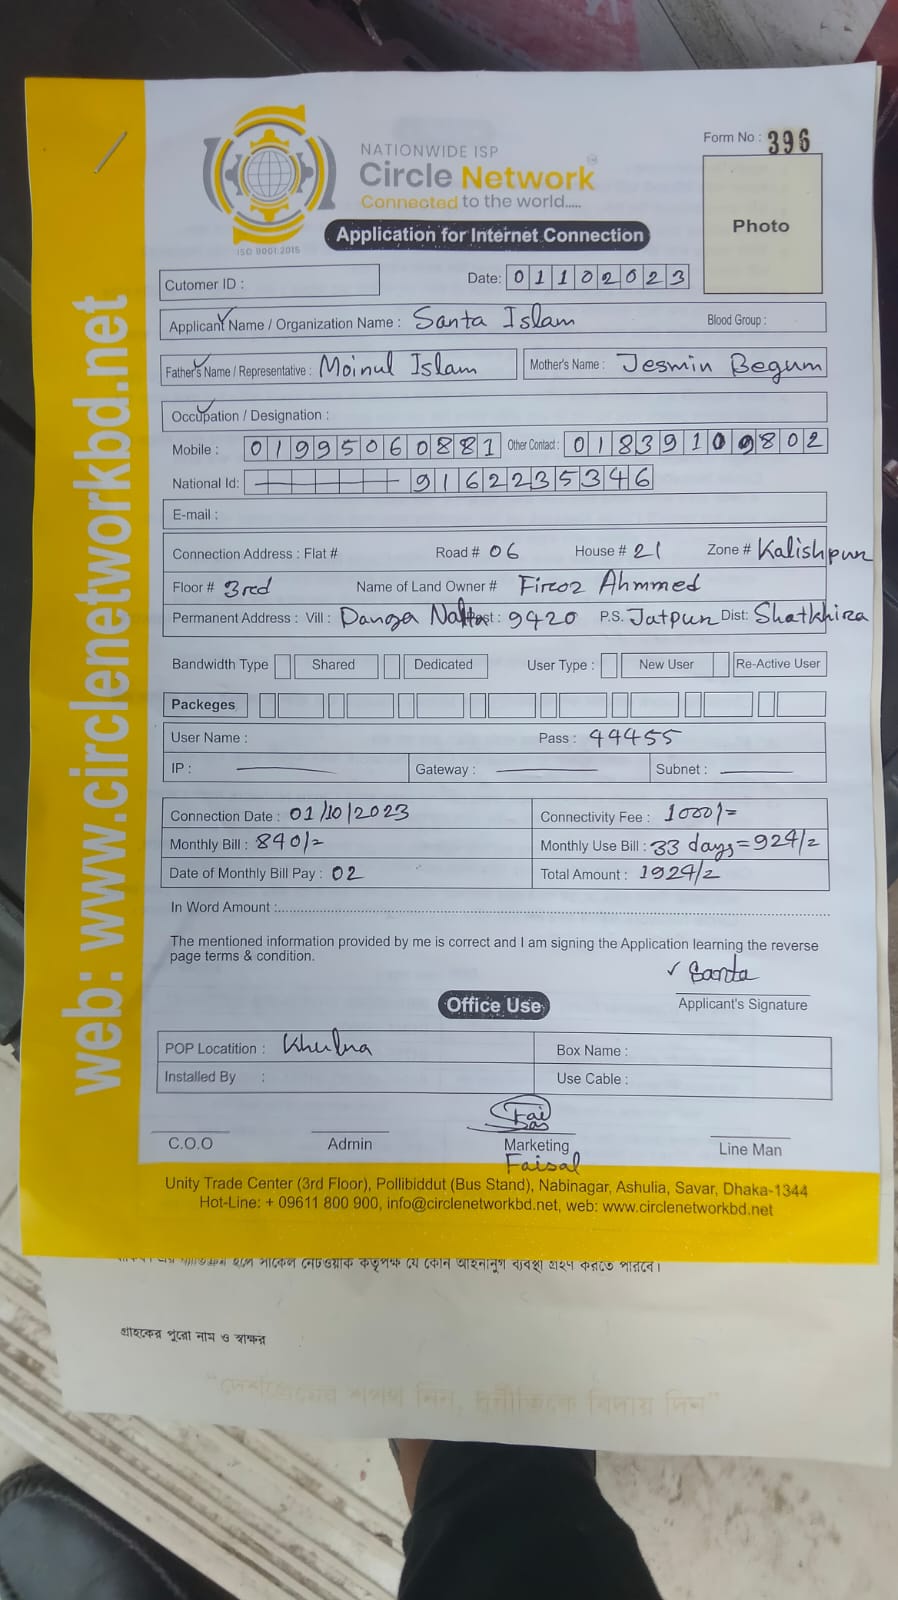 NATIONWIDE ISP
Circle Network
Connected to the world.....
ISO 9001:2015
Form No : 396
Photo
Application for Internet Connection
Cutomer ID :
Date: 01102023
Applicant Name / Organization Name : Santa Islam Blood Group :
Father's Name / Representative : Moinul Islam Mother's Name : Jesmin Begum
Occupation / Designation :
Mobile : 01995060881 Other Contact : 01839109802
National Id: 9162235346
E-mail :
Connection Address : Flat # Road # 06 House # 21 Zone # Kalishpur
Floor # 3rd Name of Land Owner # Firoz Ahmmed
Permanent Address : Vill : Danga Nalta Post : 9420 P.S. Jatpur Dist: Shatkhira
Bandwidth Type Shared Dedicated User Type : New User Re-Active User
Packeges
User Name : Pass : 44455
IP : Gateway : Subnet :
Connection Date : 01/10/2023 Connectivity Fee : 1000/=
Monthly Bill : 840/= Monthly Use Bill : 33 days = 924/=
Date of Monthly Bill Pay : 02 Total Amount : 1924/=
In Word Amount :
The mentioned information provided by me is correct and I am signing the Application learning the reverse
page terms & condition.
Santa
Applicant's Signature
Office Use
POP Locatition : Khulna Box Name :
Installed By : Use Cable :
C.O.O Admin Marketing Line Man
Faisal
Unity Trade Center (3rd Floor), Pollibiddut (Bus Stand), Nabinagar, Ashulia, Savar, Dhaka-1344
Hot-Line: + 09611 800 900, info@circlenetworkbd.net, web: www.circlenetworkbd.net
web: www.circlenetworkbd.net
হলে সার্কেল নেটওয়ার্ক কর্তৃপক্ষ যে কোন আইনানুগ ব্যবস্থা গ্রহণ করতে পারবে।
গ্রাহকের পুরো নাম ও স্বাক্ষর
"দেশপ্রেমের শপথ নিন, দুর্নীতিকে বিদায় দিন"